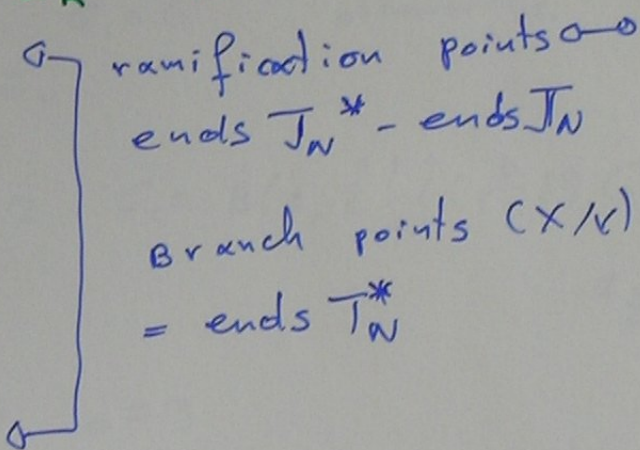 ramification points
ends T_N^* - ends T_N
Branch points (X/N)
= ends T_N^*